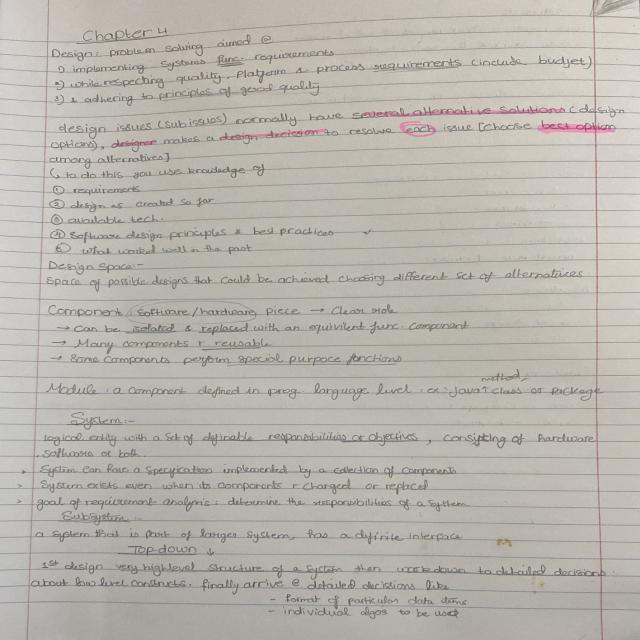 Chapter 4
Design: problem solving aimed @
1) implementing systems func. requirements
2) while respecting quality, Platform & process requirements (include budjet)
3) & adhering to principles of good quality
design issues (subissues) normally have several alternative solutions (design
options), designer makes a design decision to resolve each issue [choose best option
among alternatives]
↳ to do this you use knowledge of
① requirements
② design as created so far
③ available tech.
④ Software design principles & best practices
⑤ what worked well in the past
Design Space:-
Space of possible designs that could be achieved choosing different set of alternatives
Component: software/hardware piece → Clear role
→ Can be isolated & replaced with an equivilent func. component
→ Many components r reusable
→ Some components perform special purpose functions
method,
Module: a component defined in prog language level ex: java class or package
System:-
logical entity with a set of definable responsibilities or objectives, consisting of hardware
, software or both.
System can have a specification implemented by a collection of components
System exists even when its components r changed or replaced
goal of requirement analysis: determine the responsibilities of a system
Subsystem:-
a system that is part of larger system, has a definite interface
Top-down ↓
1st design very highlevel structure of a system then work down to detailed decisions
about low level constructs. finally arrive @ detailed decisions like
- format of particular data items
- individual algos to be used